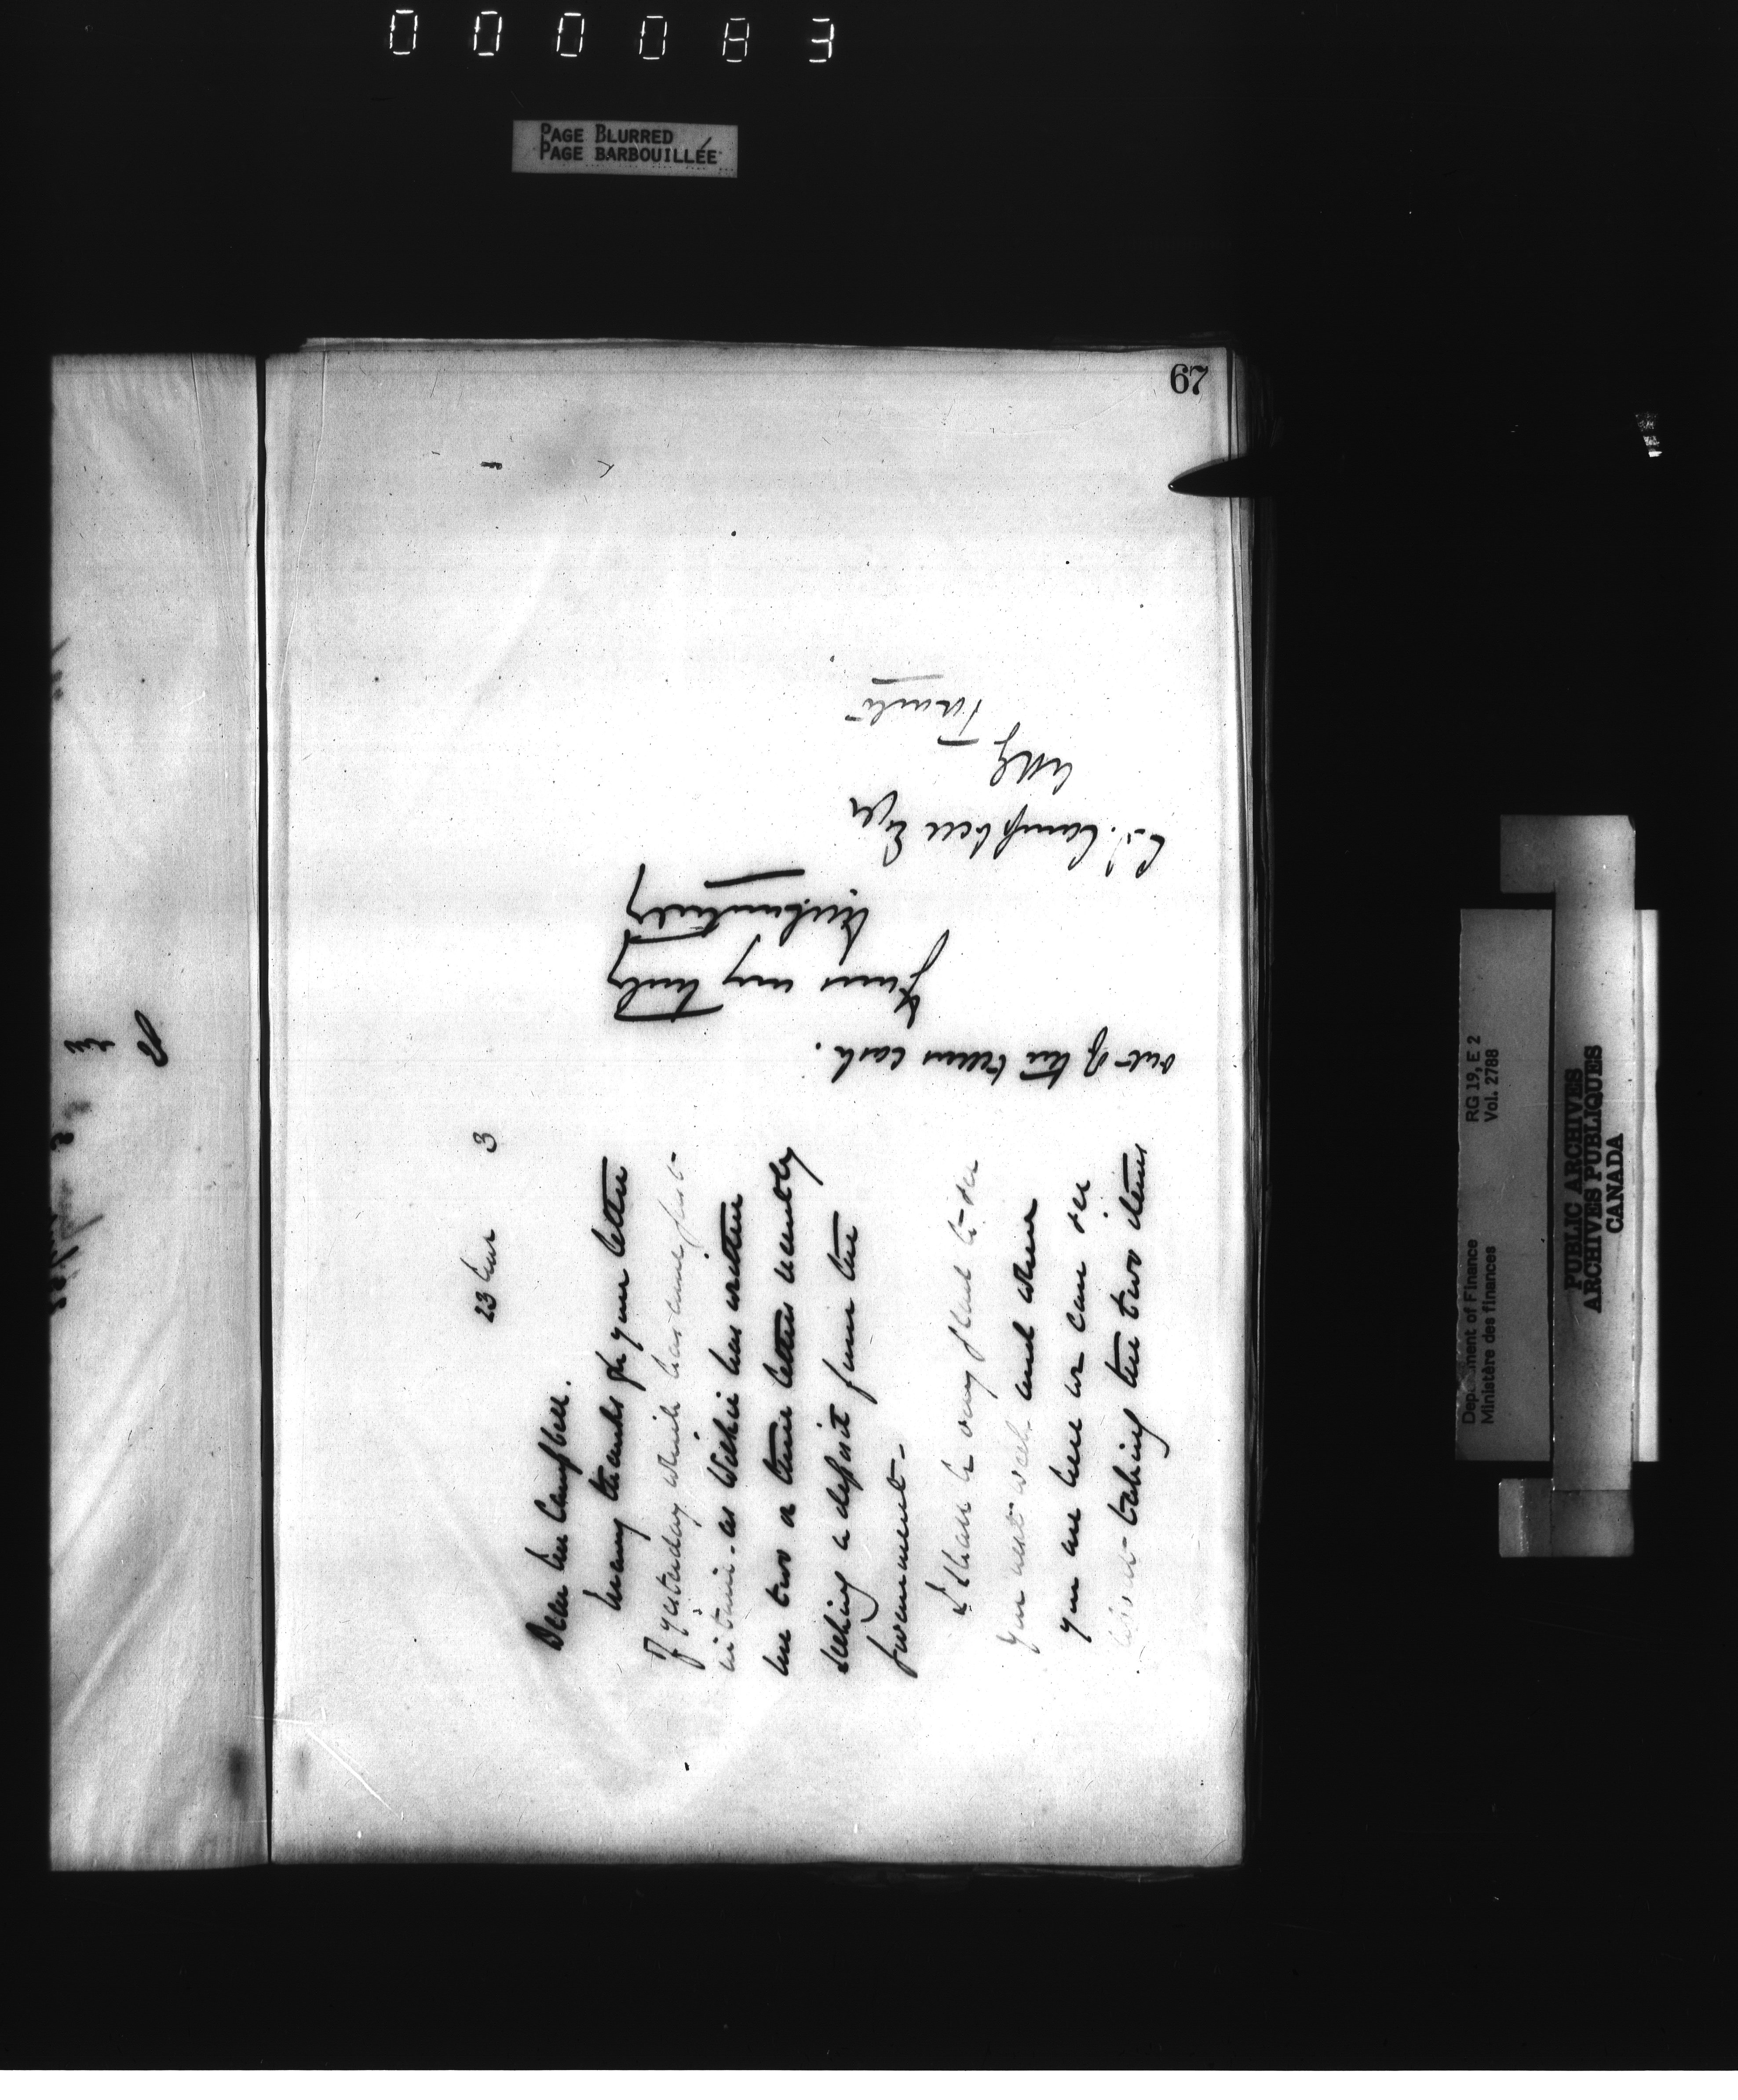 000083
PAGE BLURRED
PAGE BARBOUILLÉE
67
23 3
Dear Mr Campbell.
Many thanks for your letter
of yesterday which has come just
in time. as Wilkie has written
me two or three letters recently
seeking a deposit from the
Government-
I shall be very glad to see
you next week and when
you are here we can see
about taking the two items
out of the tellers cash.
Yours very truly
C.J. Campbell Esqr
Toronto
Department of Finance
Ministère des finances
RG 19, E 2
Vol. 2788
PUBLIC ARCHIVES
ARCHIVES PUBLIQUES
CANADA